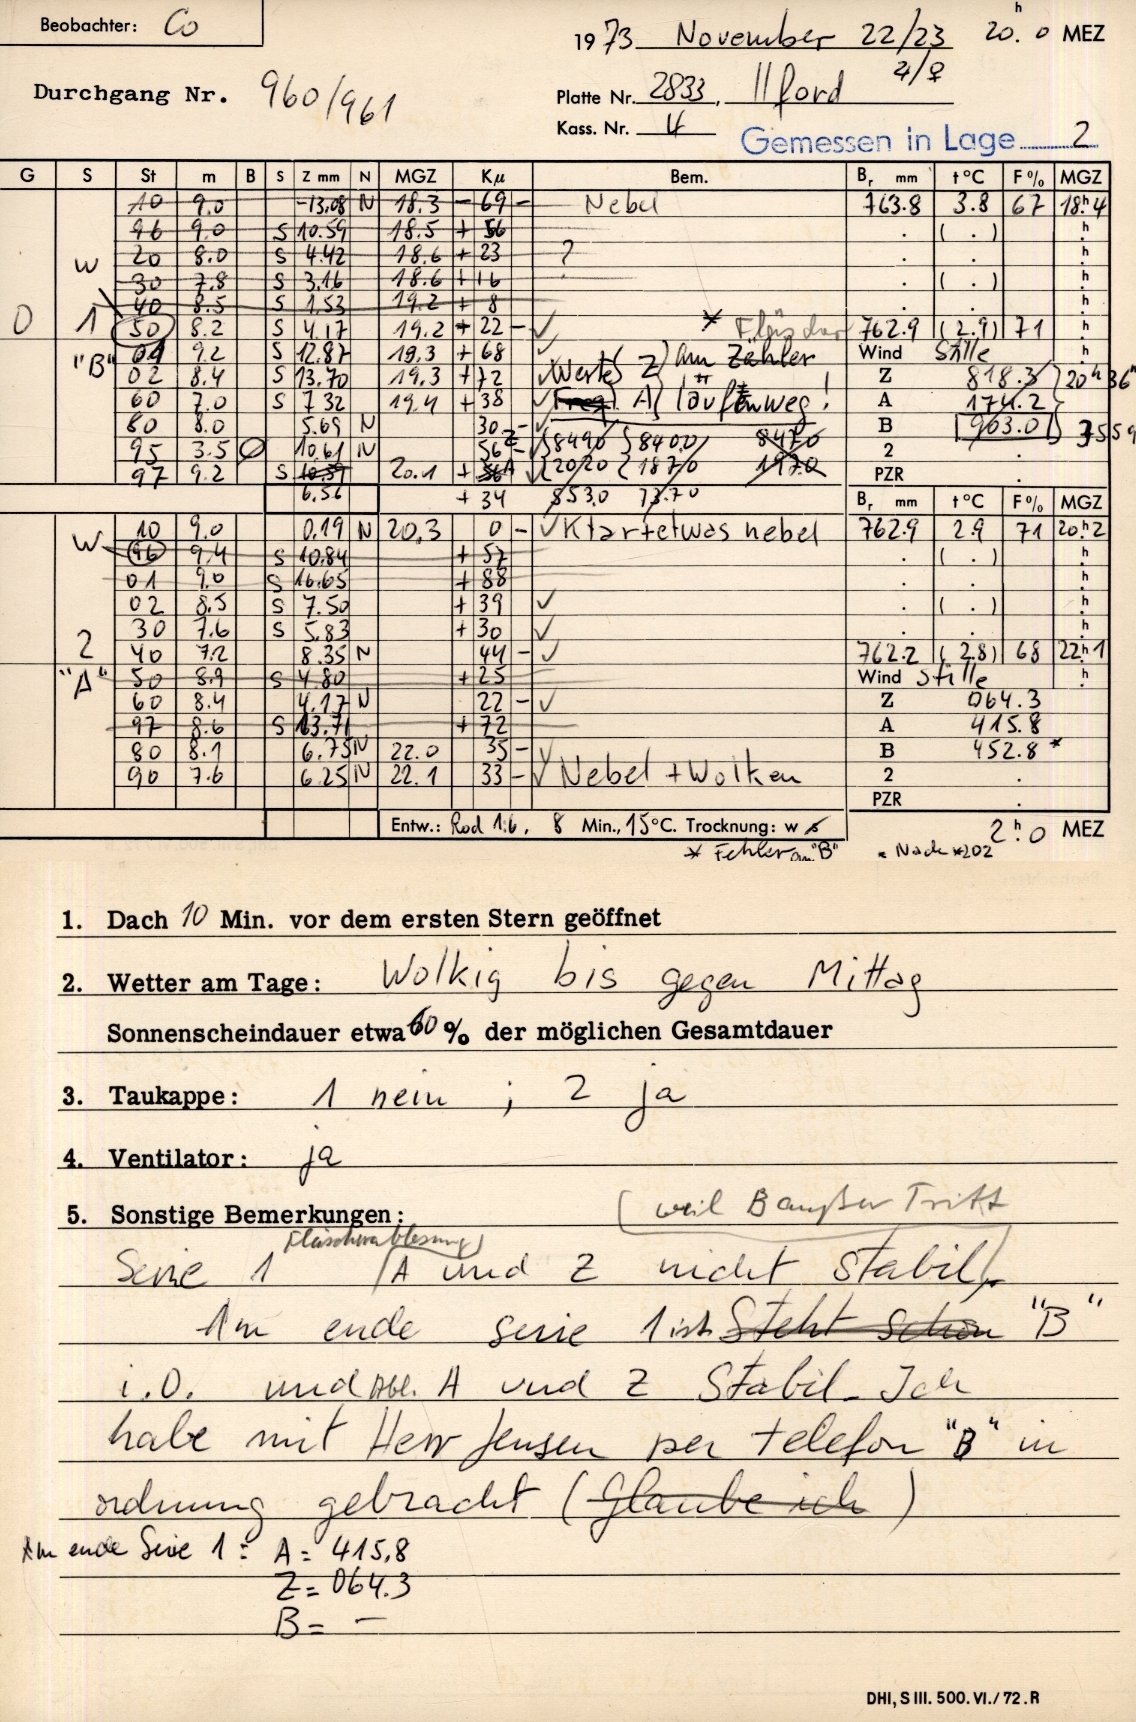 Beobachter: Co
1973 November 22/23 20.h0 MEZ
4/♀
Durchgang Nr. 960/961
Platte Nr. 2833, Ilford
Kass. Nr. 4
Gemessen in Lage 2
G S St m B S Z mm N MGZ Kµ Bem. Br mm t°C F% MGZ
10 9.0 -13.08 N 18.3 - 69 - Nebel 763.8 3.8 67 18h4
96 9.0 S 10.59 18.5 + 56 ( . ) h
20 8.0 S 4.42 18.6 + 23 ? h
W 30 7.8 S 3.16 18.6 + 16 ( . ) h
40 8.5 S 1.53 19.2 + 8 h
0 1 50 8.2 S 4.17 19.2 + 22 - ✓ * 762.9 (2.9) 71 h
"B" 01 9.2 S 12.87 19.3 + 68 ✓ Wind Stille h
02 8.4 S 13.70 19.3 + 72 ✓ Werte Z am Zähler Z 818.3 20h 36m
60 7.0 S 7.32 19.4 + 38 ✓ A läuft weg! A 174.2
80 8.0 5.69 N 30 - ✓ B 963.0
95 3.5 Ø 10.61 N 56 - Z ✓ 8490 8400 8470 2 .
97 9.2 S 20.1 + A ✓ 2020 1870 1970 PZR .
6.56 + 34 8530 73.70 Br mm t°C F% MGZ
10 9.0 0.19 N 20.3 0 - ✓ Klar+etwas nebel 762.9 2.9 71 20h2
W 96 9.4 S 10.84 + 57 ( . ) h
01 9.0 S 16.65 + 88 h
02 8.5 S 7.50 + 39 ✓ ( . ) h
30 7.6 S 5.83 + 30 ✓ h
2 40 7.2 8.35 N 44 - ✓ 762.2 (2.8) 68 22h1
"A" 50 8.9 S 4.80 + 25 Wind Stille h
60 8.4 4.17 N 22 - ✓ Z 064.3
97 8.6 S 13.71 + 72 A 415.8
80 8.1 6.75 N 22.0 35 - B 452.8 *
90 7.6 6.25 N 22.1 33 - ✓ Nebel + Wolken 2 .
PZR .
Entw.: Rod 1:6, 8 Min., 15°C. Trocknung: w s 2.h0 MEZ
* Fehler an "B" * Nach *202
1. Dach 10 Min. vor dem ersten Stern geöffnet
2. Wetter am Tage: Wolkig bis gegen Mittag
Sonnenscheindauer etwa 60 % der möglichen Gesamtdauer
3. Taukappe: 1 nein ; 2 ja
4. Ventilator: ja
5. Sonstige Bemerkungen: (weil B außer Tritt
Serie 1 (A und Z nicht Stabil).
Am ende serie 1 ist Steht schon "B"
i.O. und Abl. A und Z Stabil. Ich
habe mit Herr Jensen per telefon "B" in
ordnung gebracht (Glaube ich)
Am ende Serie 1: A = 415,8
Z = 064.3
B = -
DHI, S III. 500. VI./72. R